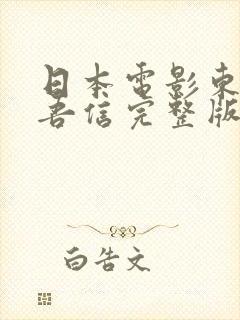 日本電影東
吾信完整版
白告文